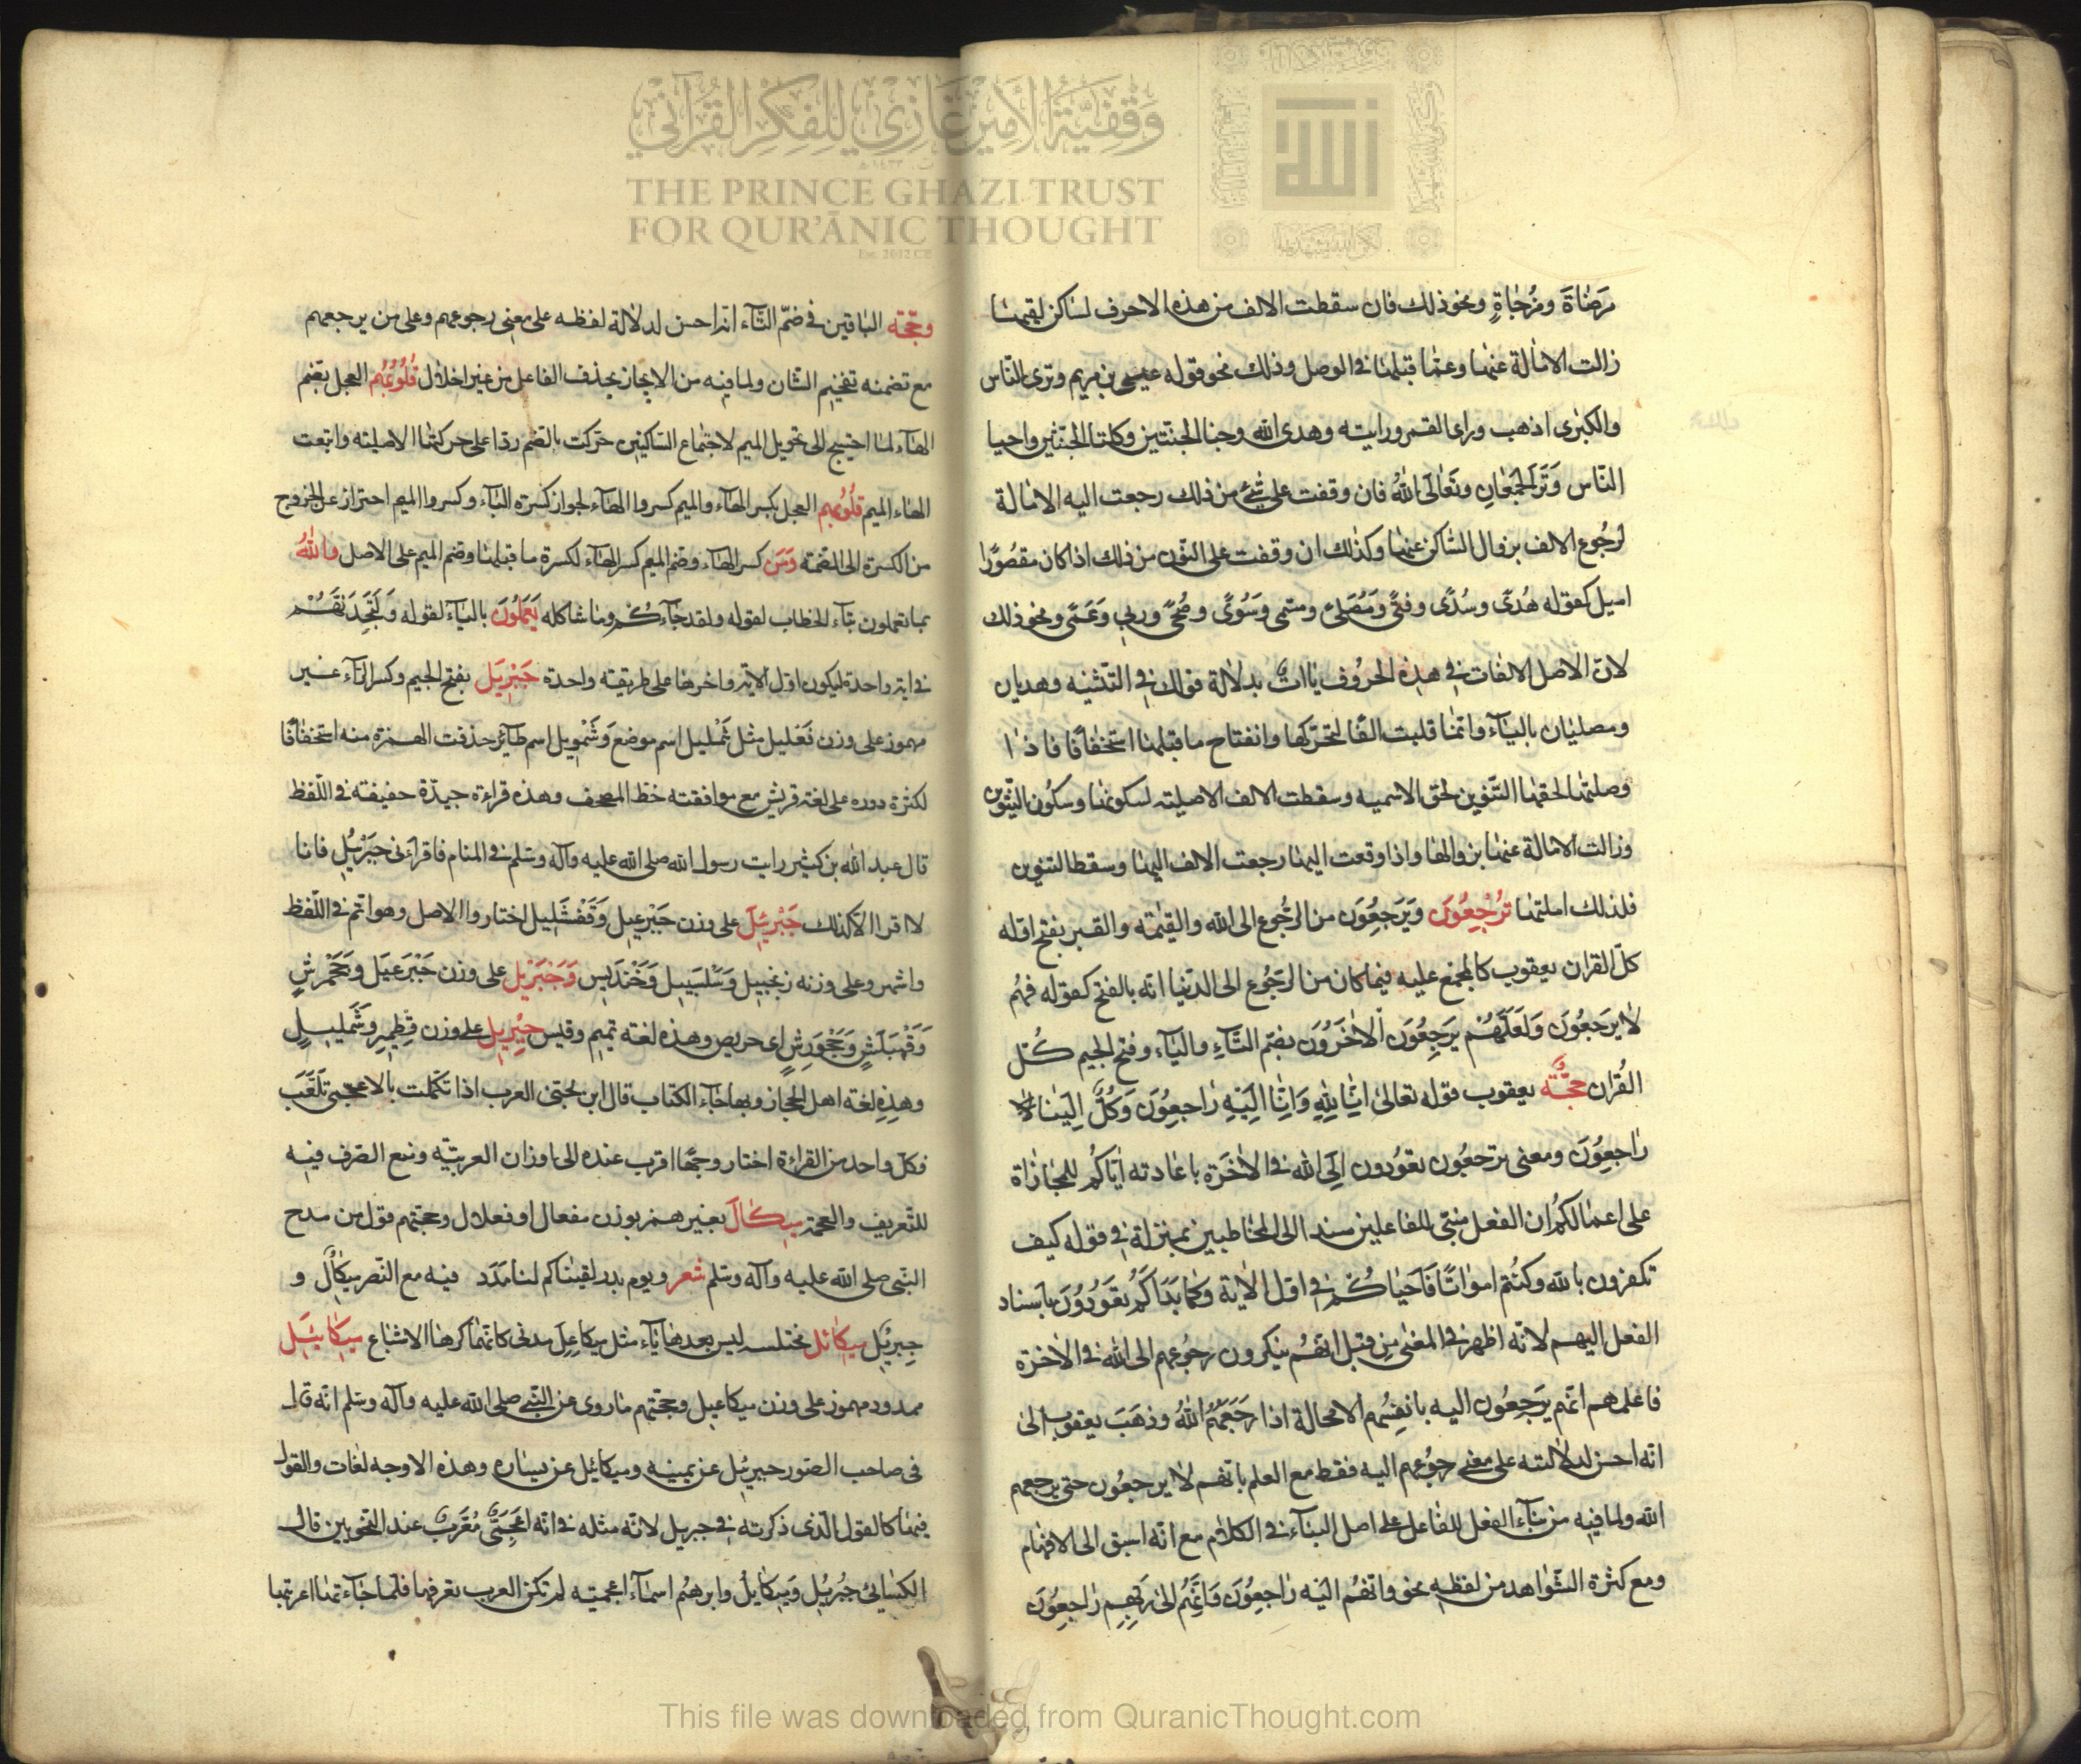 وَقْفِيَّةُ الْأَمِيرِ غَازِي لِلْفِكْرِ الْقُرْآنِيِّ
THE PRINCE GHAZI TRUST
FOR QUR'ĀNIC THOUGHT
Est. 2012 CE
مَرضَاة ومُزجاةٍ ونحو ذلك فان سقطت الالف من هذه الاحرف لساكن لقيها
زالت الامالة عنها وعمّا قبلها في الوصل وذلك نحو قوله عيسى بن مريم وترى الناس
والكبرى اذهب وراى القمر ورايته وهدى الله وجنا الجنتين وكلتا الجنتين واحيا
النّاس وَتَرَاءَ الجَمْعَانِ وتَعَالَى اللهُ فان وقفت على شئ من ذلك رجعت اليه الامالة
لرجُوع الالف بزوال السّاكن عنها وكذلك ان وقفت على المنون من ذلك اذا كان مقصُورًا
اميل كقوله هُدًى وسُدًى وفتًى ومُصَلّى ومسمى وَسُوًى وضُحًى وربى وَعَمًى ونحو ذلك
لانّ الاصل الالفات في هذِه الحرُوف ياءاتٌ بدلالة قولك في التّثنيه وهديان
ومصليان باليَآء وانّما قلبت الفًا لتحرّكها وانفتاح ما قبلها استخفافًا فاذا
وصلتها الحقها التّنوين لحق الاسميه وسقطت الالف الاصليّه لسكونها وسكُون التنّوين
وزالت الامالة عنها بزوالها واذا وقعت اليها رجعت الالف اليها وسقط التنوين
فلذلك املتها تُرْجَعُونَ وَيَرجِعُونَ من الرجُوع الى الله والقيٰمة والقبر بفتح اوّله
كلّ القران يعقوب كالمجمع عليه فيما كان من الرّجُوع الى الدّنيا انّه بالفتح كقوله فهُم
لا يرَجعُونَ وَلَعَلّهُمْ يرَجِعُونَ اْلاخَرُونَ بضمّ التَّاءِ واليَآءِ وفتح الجيم كُلّ
القُران حجَّة يعقوب قوله تعالى اِنّا لِلّهِ وَاِنّا اِليَهِ رَاجعِوُنَ وَكُلٌّ اِليَنا
رَاجعِوُنَ ومعنى ترجعُون تعوُدون اِلَى الله في الاخَرة باعَادته اِيّاكُم للمجَازاة
على اعمالكُم ان الفعل مبنى للفاعلين سند الى المخاطبين بمنزلة في قوله كيف
تكفرُون باللّه وكنتُم امواتًا فَاَحيَاكُمْ في اوّل الايَة وكمَا بَدَاَكُم تعَوُدُونَ باسناد
الفعل اليهم لانّه اظهر في المعنى من قبل انّهُم ينكرون رجُوعهم الى الله في الاخرة
فاعلمهم انّهم يرَجِعُون اليه بانفِسُهم لا محالة اذا رَجَعَهُمُ اللهُ وذهَبَ يعقوب الى
انّه احسن لدلالته على معنى رجوُعهم اليه فقط مع العلم بانّهم لا يرجعُون حتى يرجعهم
الله ولما فيه من بنَآء الفعل للفاعل على اصل البناء في الكلام مع انّه اسبق الى الافهام
ومع كثرة الشّواهد من لفظه نحو وانّهُم اليَه رَاجعِوُنَ وَاَنّهُم الى رَبّهِمِ رَاجعِوُنَ
وحجّة الباقين في ضمّ التّآء انّه احسن لدلالة لفظه على معنى رجوعهم وعلى من يرجعهم
مع تضمنه تفخيم الشّان ولما فيه من الايجاز بحذف الفاعل من غير اخلال قُلُوبُهُم العجل بضم
الهآء لما احتيج الى تحويل الميم لاجتماع السّاكنين حرّكت بالضم ردا على حركتها الاصليّه واتبعت
الهاء الميم قلُوبهِم العجل بكسر الهآء والميم كسروا الهآء لجوار كسرة البَآء وكسروا الميم احتراز عن الخروج
من الكسرة الى الضمّة وَمَن كسر الهآء وضم الميم كسر الهآء لكسرة ما قبلها وضم الميم على الاصل واللهُ
بما تعملون بتآء الخطاب لقوله ولقد جآءكُم وما شاكله يَعَملُونَ باليَآء لقوله وَلَتَجِدَنّهُمْ
في ايه واحدة ليكون اوّل الايه واخرها على طريقه واحدة جَبْرِيَل بفتح الجيم وكسر الرّآء غير
مهموز على وزن فَعليل مثل ثَمْليل اسم موضع وَشَمْويل اسم طآئر حذفت الهمزة منه استخفافًا
لكثرة دوره على لغة قريش مع موافقته خطّ المصحف وهذه قراءة جيدّة خفيفة في اللّفظ
قال عبد الله بن كثير رايت رسول الله صلى الله عليه وآله وسلّم في المنام فاقرأنى جَبَرْيُل فانا
لا اقرا الا كذلك جَبْرئيِل على وزن جَبْرعيل وَقَفْشَليل اختاروا الاصل وهو اتم في اللّفظ
واشهر وعلى وزنه زنجبيل وَسَلسَبيل وَخَندَريس وَجَبَرئِل على وزن جَبَرعِيَل وجَحْمَرشٍ
وَقَهبَلَسٍ وَعَجْوَرِشٍ اى حريص وهذه لغة تميم وقيس جِبْرِيِل على وزن قِطِميِرِ وشَمليِلٍ
وهذِه لغة اهل الحجاز وبها جَاء الكتاب قال ابن الجنى العرب اذا تكَلمت بالاعجمى تلعَّبَت
فكلّ واحد من القراءة اختار وجهًا اقرب عنده الى اوزان العربيّه ومنع الصّرف فيه
للتّعريف والعجمة مِيكَالَ بغير همز بوزن مفعال او فعلال وحجّتهم قول من مدح
النّبى صلى الله عليه وآله وسلم شعر ويوم بدر لقيناكم لنا مَدَد فيه مع النّصر ميكالُ و
جِبرئِيل ميكائل مختلسه ليس بعدها يآء مثل ميكاعِلَ مدنى كانّهم كرهوا الاشباع ميكَائيَل
ممدود مهموز على وزن ميكاعيل وحجّتهم ما روى عن النّبى صلى الله عليه وآله وسلم انّه قال
فى صاحب الصّور جبرئيل عن يمينه وميكائيل عن يساره وهذه الاوجه لغات والقول
فيها كالقول الّذى ذكرته في جبريل لانّه مثله في انّه اعجمىّ مُعَرّب عند النّحويين قال
الكسَائىُ جبُريُل وَميكايل وابرهُم اسمآء اعجميّه لم تكن العرب تعرفها فلمّا جَاءتها اعربتها
This file was downloaded from QuranicThought.com